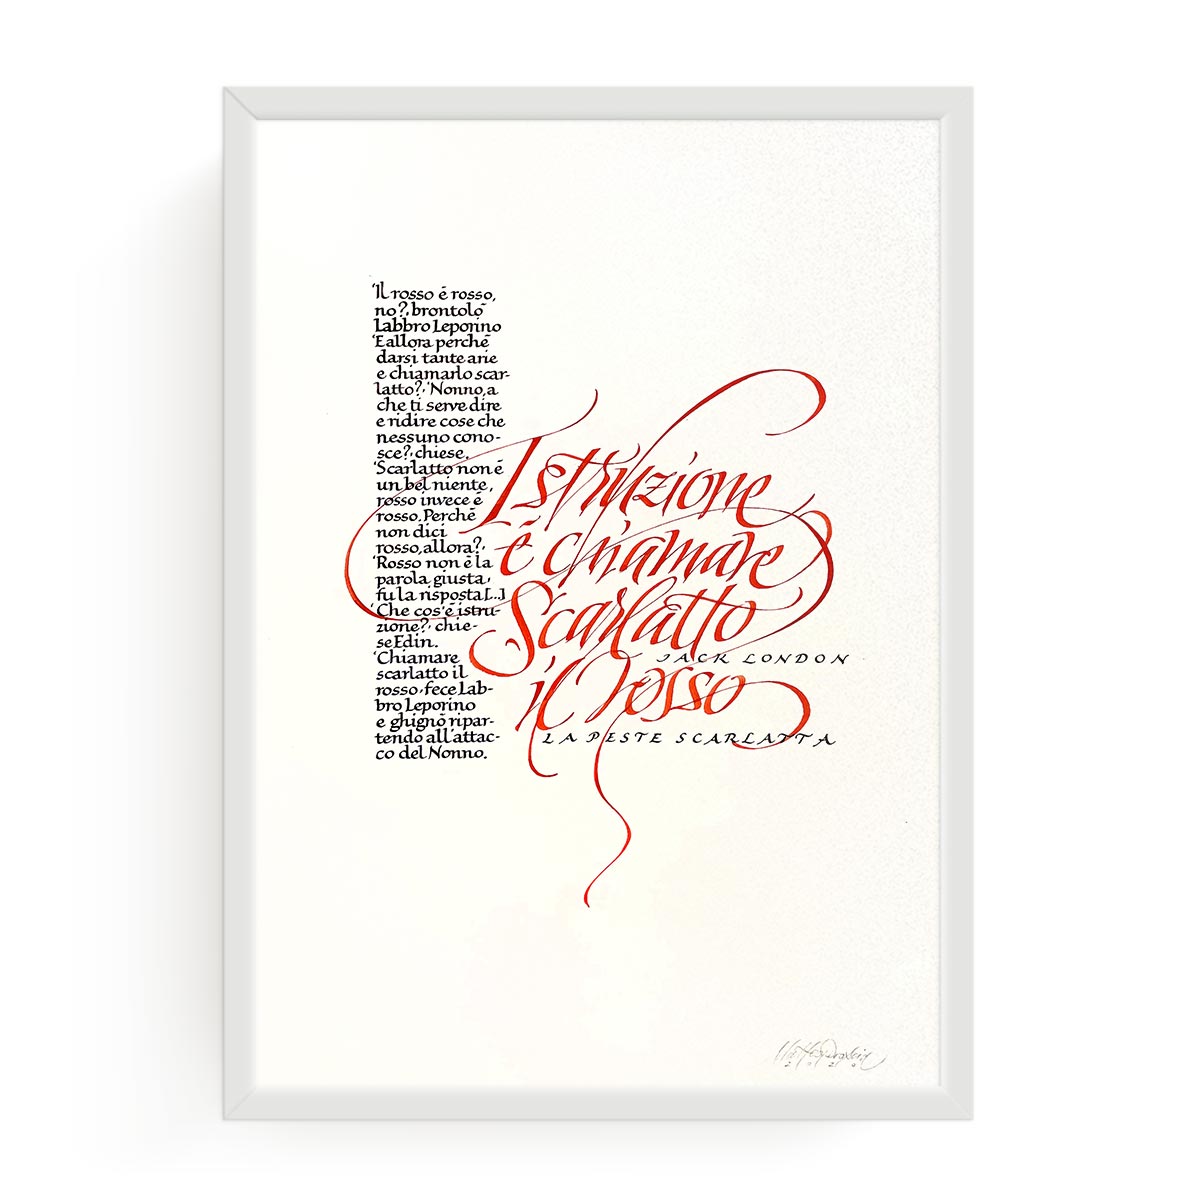 'Il rosso è rosso,
no?, brontolò
Labbro Leporino
'E allora perché
darsi tante arie
e chiamarlo scar-
latto?, 'Nonno, a
che ti serve dire
e ridire cose che
nessuno cono-
sce?, chiese.
'Scarlatto non è
un bel niente,
rosso invece è
rosso. Perché
non dici
rosso, allora?,
'Rosso non è la
parola giusta,
fu la risposta [...]
'Che cos'è istru-
zione?, chie-
se Edin.
'Chiamare
scarlatto il
rosso, fece Lab-
bro Leporino
e ghignò ripar-
tendo all'attac-
co del Nonno.
Istruzione
è chiamare
Scarlatto
il rosso
JACK LONDON
LA PESTE SCARLATTA
2020